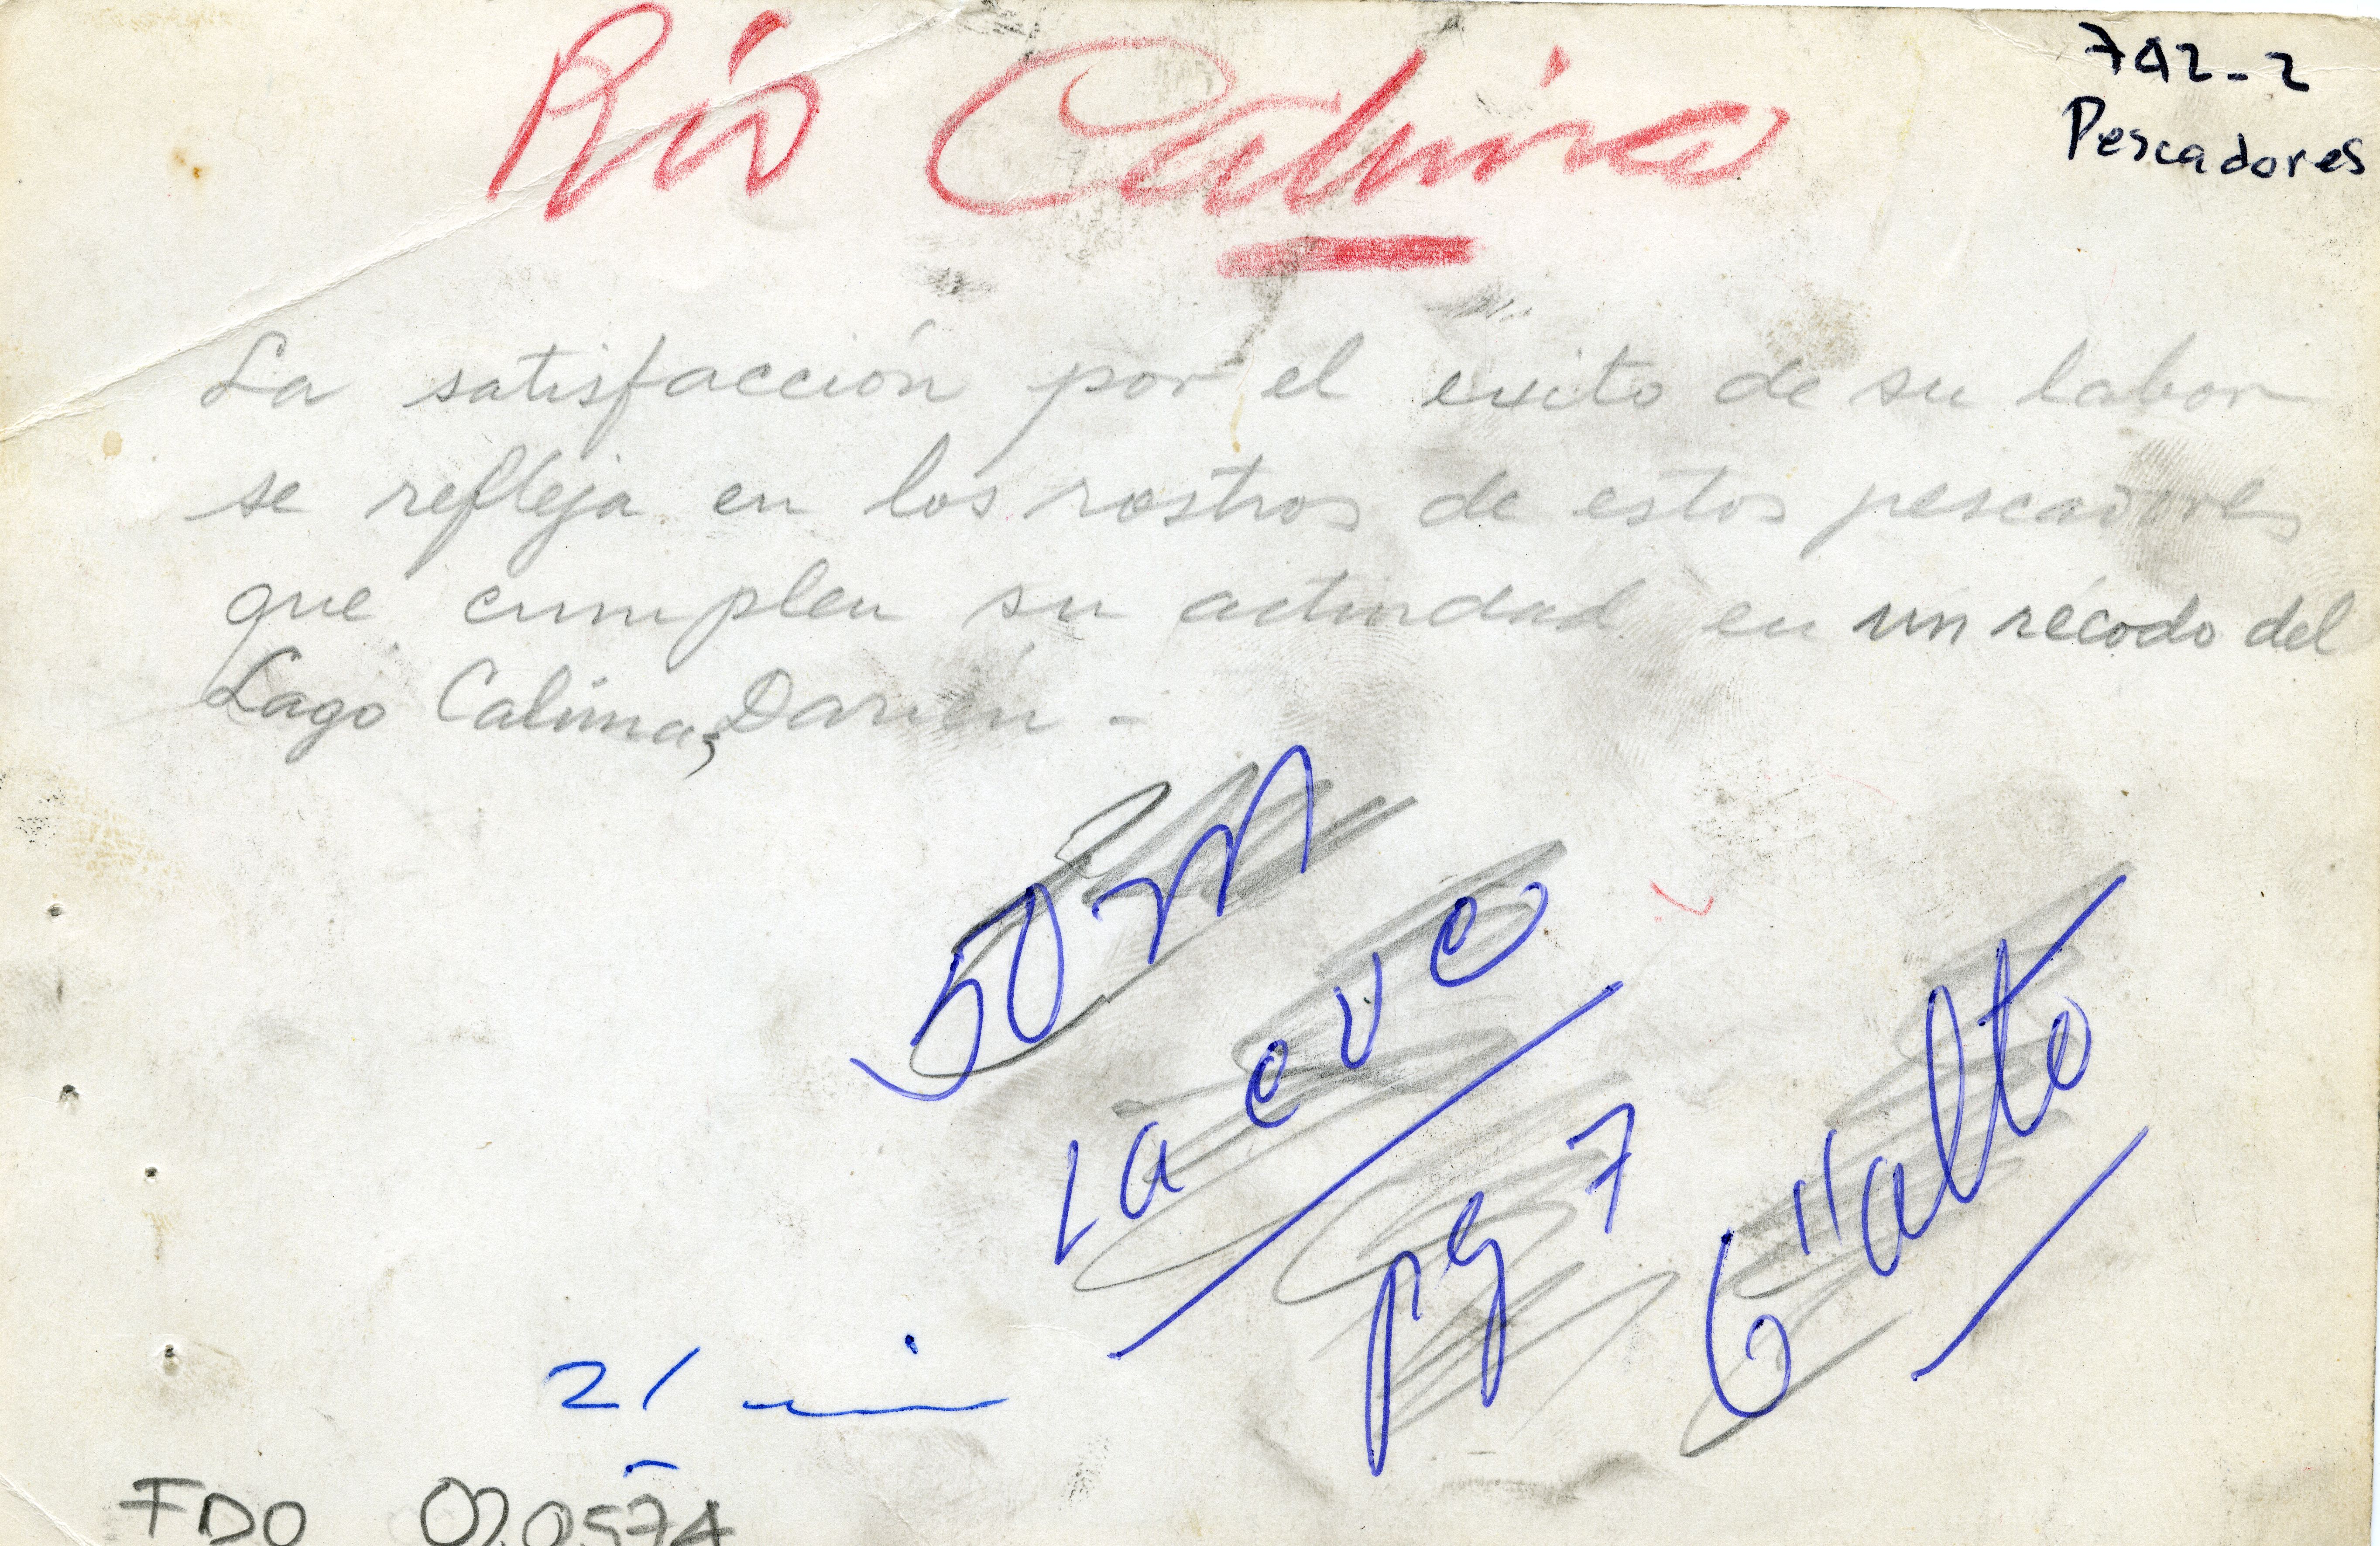 Río Calima
742-2
Pescadores
La satisfacción por el exito de su labor
se refleja en los rostros de estos pescadores
que cumplen su actividad en un recodo del
Lago Calima, Darién -
50 m
pg 7
6" alto
21
FDO 020574